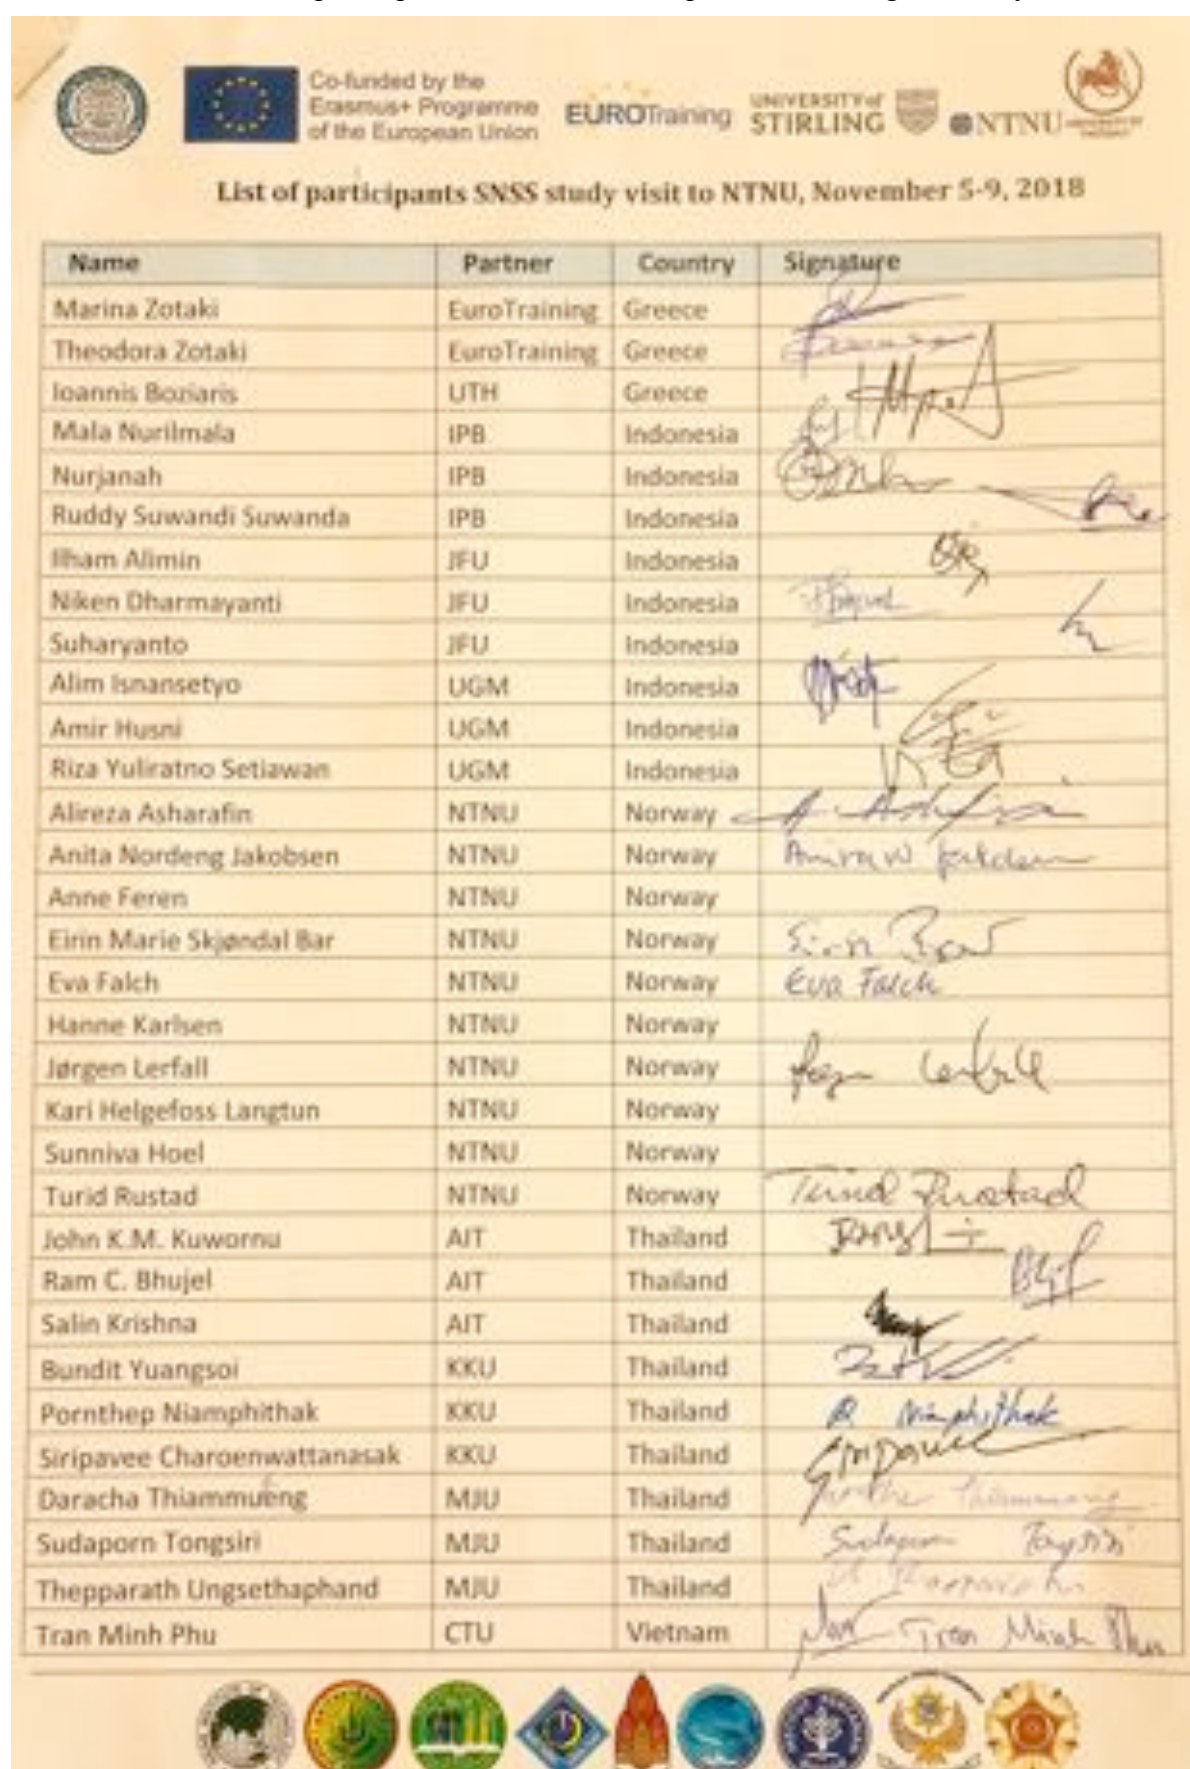 Co-funded by the
Erasmus+ Programme
of the European Union
EUROTraining
UNIVERSITY of
STIRLING
NTNU
List of participants SNSS study visit to NTNU, November 5-9, 2018
Name Partner Country Signature
Marina Zotaki EuroTraining Greece
Theodora Zotaki EuroTraining Greece
Ioannis Boziaris UTH Greece
Mala Nurilmala IPB Indonesia
Nurjanah IPB Indonesia
Ruddy Suwandi Suwanda IPB Indonesia
Ilham Alimin JFU Indonesia
Niken Dharmayanti JFU Indonesia
Suharyanto JFU Indonesia
Alim Isnansetyo UGM Indonesia
Amir Husni UGM Indonesia
Riza Yuliratno Setiawan UGM Indonesia
Alireza Asharafin NTNU Norway
Anita Nordeng Jakobsen NTNU Norway
Anne Feren NTNU Norway
Eirin Marie Skjøndal Bar NTNU Norway Eirin Bar
Eva Falch NTNU Norway Eva Falch
Hanne Karlsen NTNU Norway
Jørgen Lerfall NTNU Norway
Kari Helgefoss Langtun NTNU Norway
Sunniva Hoel NTNU Norway
Turid Rustad NTNU Norway Turid Rustad
John K.M. Kuwornu AIT Thailand
Ram C. Bhujel AIT Thailand
Salin Krishna AIT Thailand
Bundit Yuangsoi KKU Thailand
Pornthep Niamphithak KKU Thailand P. Niamphithak
Siripavee Charoenwattanasak KKU Thailand Siripavee
Daracha Thiammueng MJU Thailand
Sudaporn Tongsiri MJU Thailand Sudaporn Tongsiri
Thepparath Ungsethaphand MJU Thailand
Tran Minh Phu CTU Vietnam Tran Minh Phu